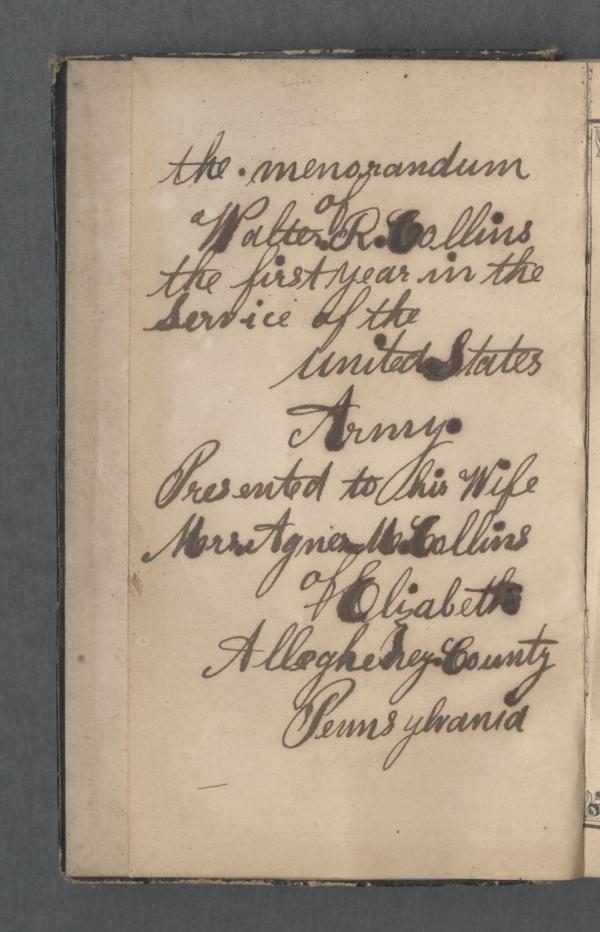 the. menorandum
of
Walter. R. Collins
the first year in the
Service of the
United States
Army.
Presented to his Wife
Mrs. Agnes M. Collins
of Elizabeth
Allegheney. County
Pennsylvania